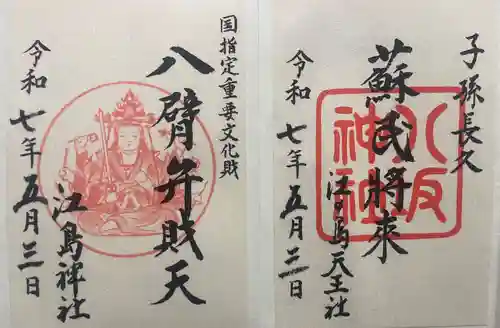 子孫長久
蘇民將來
八坂
神社
江の島天王社
令和七年五月三日
国指定重要文化財
八臂弁財天
江島神社
令和七年五月三日